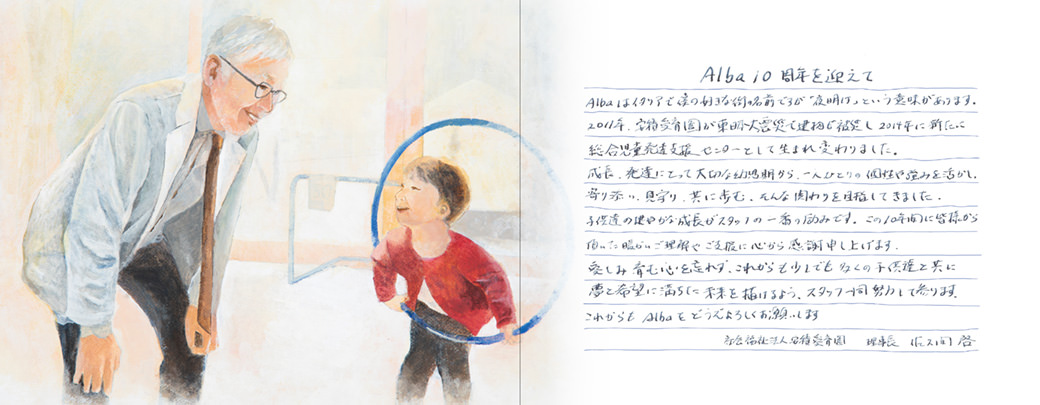 Alba 10 周年を迎えて
Albaはイタリアで僕の好きな街の名前ですが“夜明け”という意味があります。
2011年、安積愛育園が東日本大震災で建物が被災し2014年に新たに
総合児童発達支援センターとして生まれ変わりました。
成長、発達にとって大切な幼児期から、一人ひとりの個性や強みを活かし、
寄り添い、見守り、共に歩む、そんな関わりを目指してきました。
子供達の健やかな成長がスタッフの一番の励みです。この10年間に皆様から
頂いた暖かいご理解やご支援に心から感謝申し上げます。
愛しみ育む心を忘れず、これからも少しでも多くの子供達と共に
夢と希望に満ちた未来を描けるよう、スタッフ一同努力して参ります。
これからもAlbaをどうぞよろしくお願いします
社会福祉法人安積愛育園 理事長 佐久間 啓